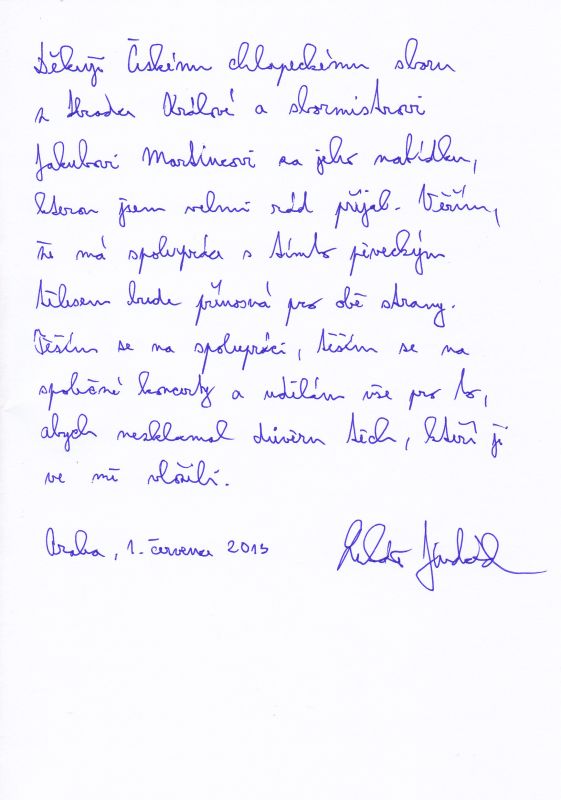 Děkuji Českému chlapeckému sboru
z Hradce Králové a sbormistrovi
Jakubovi Martincovi za jeho nabídku,
kterou jsem velmi rád přijal. Věřím,
že má spolupráce s tímto pěveckým
tělesem bude přínosná pro obě strany.
Těším se na spolupráci, těším se na
společné koncerty a udělám vše pro to,
abych nezklamal důvěru těch, kteří ji
ve mě vložili.
Praha, 1. července 2015